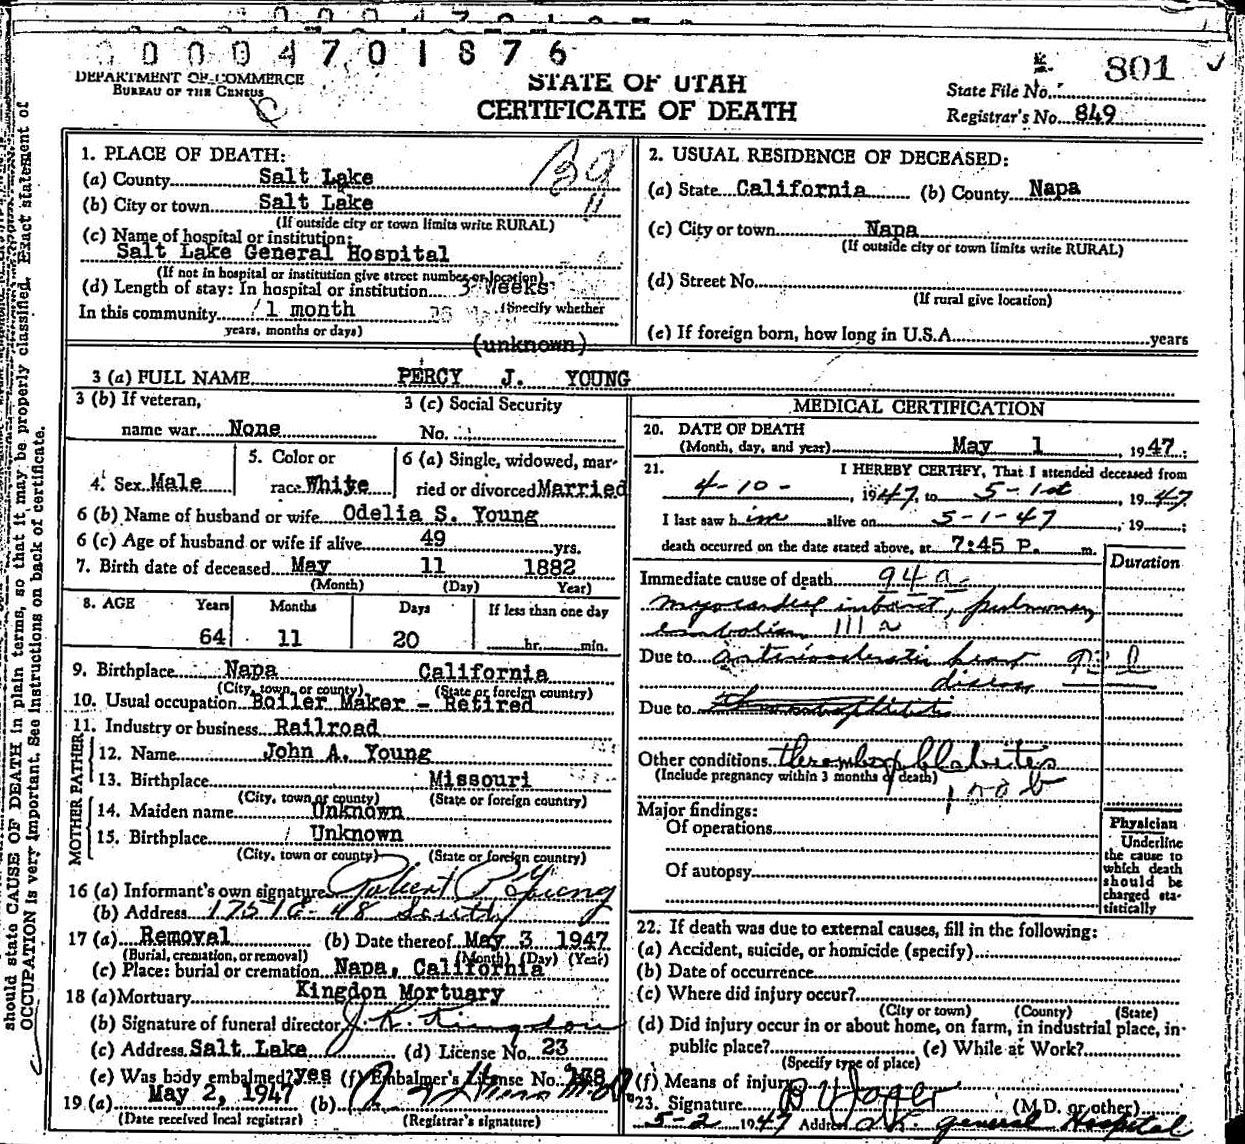 0 0 0 4 7 0 1 8 7 6
DEPARTMENT OF COMMERCE
BUREAU OF THE CENSUS
STATE OF UTAH
CERTIFICATE OF DEATH
801
State File No.
Registrar's No. 849
should state CAUSE OF DEATH in plain terms, so that it may be properly classified. Exact statement of
OCCUPATION is very important. See instructions on back of certificate.
1. PLACE OF DEATH:
(a) County Salt Lake
(b) City or town Salt Lake
(If outside city or town limits write RURAL)
(c) Name of hospital or institution:
Salt Lake General Hospital
(If not in hospital or institution give street number or location)
(d) Length of stay: In hospital or institution 3 Weeks
(Specify whether
In this community 1 month
years, months or days)
2. USUAL RESIDENCE OF DECEASED:
(a) State California (b) County Napa
(c) City or town Napa
(If outside city or town limits write RURAL)
(d) Street No.
(If rural give location)
(e) If foreign born, how long in U.S.A. years
(unknown)
3 (a) FULL NAME PERCY J. YOUNG
3 (b) If veteran,
name war None
3 (c) Social Security
No.
4. Sex Male
5. Color or
race White
6 (a) Single, widowed, mar-
ried or divorced Married
6 (b) Name of husband or wife Odelia S. Young
6 (c) Age of husband or wife if alive 49 yrs.
7. Birth date of deceased May 11 1882
(Month) (Day) Year)
8. AGE Years Months Days If less than one day
64 11 20 hr. min.
9. Birthplace Napa California
(City, town, or county) (State or foreign country)
10. Usual occupation Boiler Maker - Retired
11. Industry or business Railroad
FATHER
12. Name John A. Young
13. Birthplace Missouri
(City, town or county) (State or foreign country)
MOTHER
14. Maiden name Unknown
15. Birthplace Unknown
(City, town or county) (State or foreign country)
16 (a) Informant's own signature Robert P Young
(b) Address South
17 (a) Removal (b) Date thereof May 3 1947
(Burial, cremation, or removal) (Month) (Day) (Year)
(c) Place: burial or cremation Napa, California
18 (a) Mortuary Kingdon Mortuary
(b) Signature of funeral director J. R. Kingdon
(c) Address Salt Lake (d) License No. 23
(e) Was body embalmed? yes (f) Embalmer's License No.
19 (a) May 2, 1947 (b)
(Date received local registrar) (Registrar's signature)
MEDICAL CERTIFICATION
20. DATE OF DEATH
(Month, day, and year) May 1 1947
21. I HEREBY CERTIFY, That I attended deceased from
4-10-, 1947, to 5-1st 1947
I last saw him alive on 5-1-47, 19 ;
death occurred on the date stated above, at 7:45 P. m.
Duration
Immediate cause of death 94a
myocardial infarct, pulmonary
embolism 111a
Due to arteriosclerotic heart
disease
Due to
Other conditions thrombophlebitis
(Include pregnancy within 3 months of death)
100b
Major findings:
Of operations
Of autopsy
Physician
Underline
the cause to
which death
should be
charged sta-
tistically
22. If death was due to external causes, fill in the following:
(a) Accident, suicide, or homicide (specify)
(b) Date of occurrence
(c) Where did injury occur?
(City or town) (County) (State)
(d) Did injury occur in or about home, on farm, in industrial place, in
public place? (e) While at Work?
(Specify type of place)
(f) Means of injury
23. Signature (M.D. or other)
5-2 1947 Address S.L. General Hospital